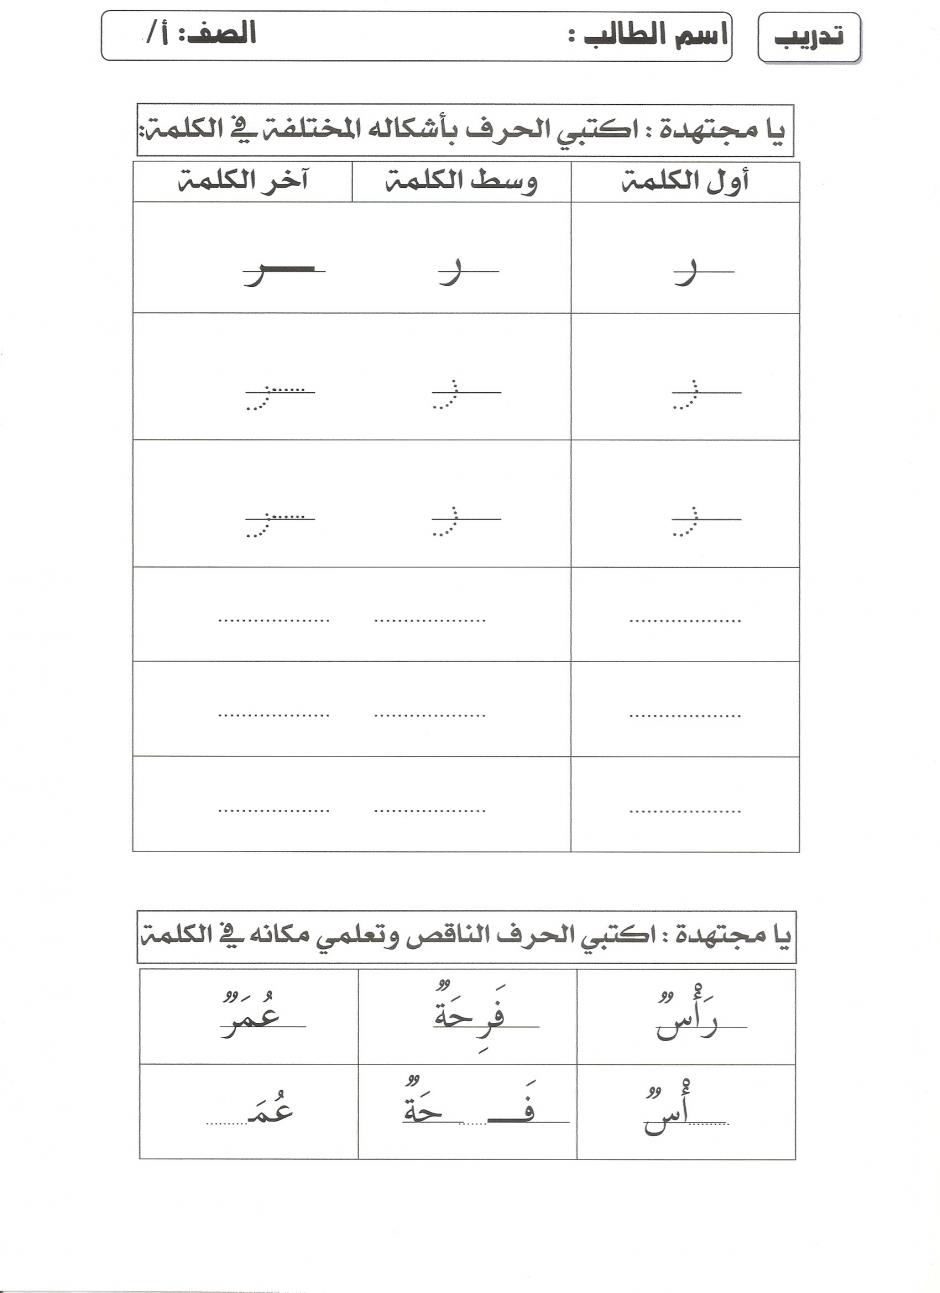 تدريب اسم الطالب : الصف: أ/
يا مجتهدة : اكتبي الحرف بأشكاله المختلفة في الكلمة:
أول الكلمة وسط الكلمة آخر الكلمة
ر ر ـر
ر ر ـر
ر ر ـر
.................. .................. ..................
.................. .................. ..................
.................. .................. ..................
يا مجتهدة : اكتبي الحرف الناقص وتعلمي مكانه في الكلمة
رَأْسٌ فَرِحَةٌ عُمَرٌ
......أْسٌ فَـ......حَةٌ عُمَـ........